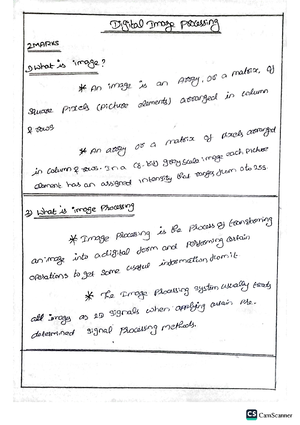 Digital Image Processing
2MARKS
1) What is image?
* An image is an array, or a matrix, of
square pixels (picture elements) arranged in column
& rows
* An array or a matrix of pixels arranged
in column & rows. In a (8-bit) greyscale image each picture
element has an assigned intensity that ranges from 0 to 255.
2) What is image Processing
* Image Processing is the process of transforming
an image into a digital form and performing certain
operations to get some useful information from it.
* The Image Processing system usually treats
all images as 2D signals when applying certain pre
determined signal processing methods.
CS CamScanner